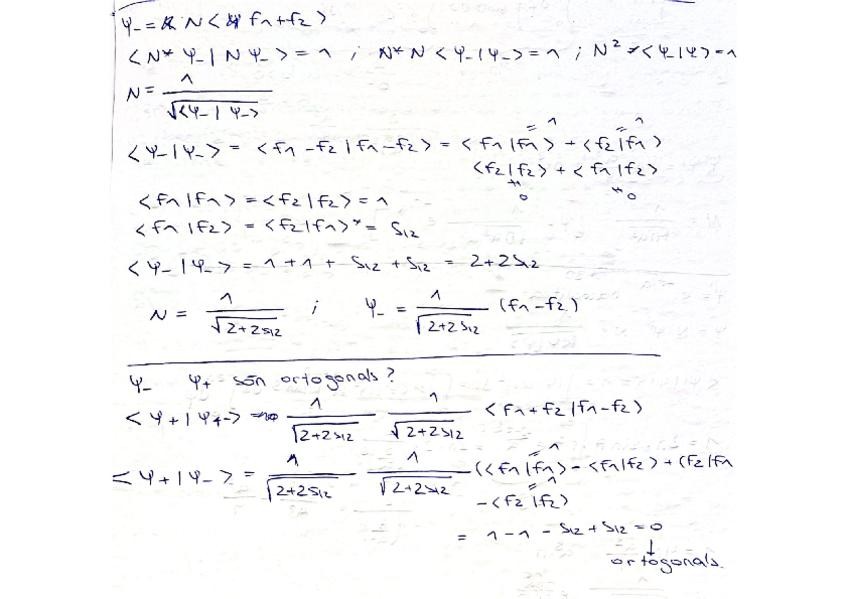 Ψ₋ = N < f1 + f2 >
< N* Ψ₋ | N Ψ₋ > = 1 ; N* N < Ψ₋ | Ψ₋ > = 1 ; N² < Ψ₋ | Ψ > = 1
N = 1 / √<Ψ₋ | Ψ₋>
< Ψ₋ | Ψ₋ > = < f1 - f2 | f1 - f2 > = < f1 | f1 > + < f2 | f1 >
= 1 = 1
< f2 | f2 > + < f1 | f2 >
0 0
< f1 | f1 > = < f2 | f2 > = 1
< f1 | f2 > = < f2 | f1 >* = S12
< Ψ₋ | Ψ₋ > = 1 + 1 + S12 + S12 = 2 + 2S12
N = 1 / √(2 + 2S12) ; Ψ₋ = 1 / √(2 + 2S12) (f1 - f2)
Ψ₋ Ψ₊ són ortogonals?
< Ψ+ | Ψ₋ > 1 / √(2+2S12) 1 / √(2+2S12) < f1 + f2 | f1 - f2 >
< Ψ+ | Ψ₋ > = 1 / √(2+2S12) 1 / √(2+2S12) (< f1 | f1 > - < f1 | f2 > + (f2 | f1
= 1
- < f2 | f2 >
= 1
= 1 - 1 - S12 + S12 = 0
↓
ortogonals.